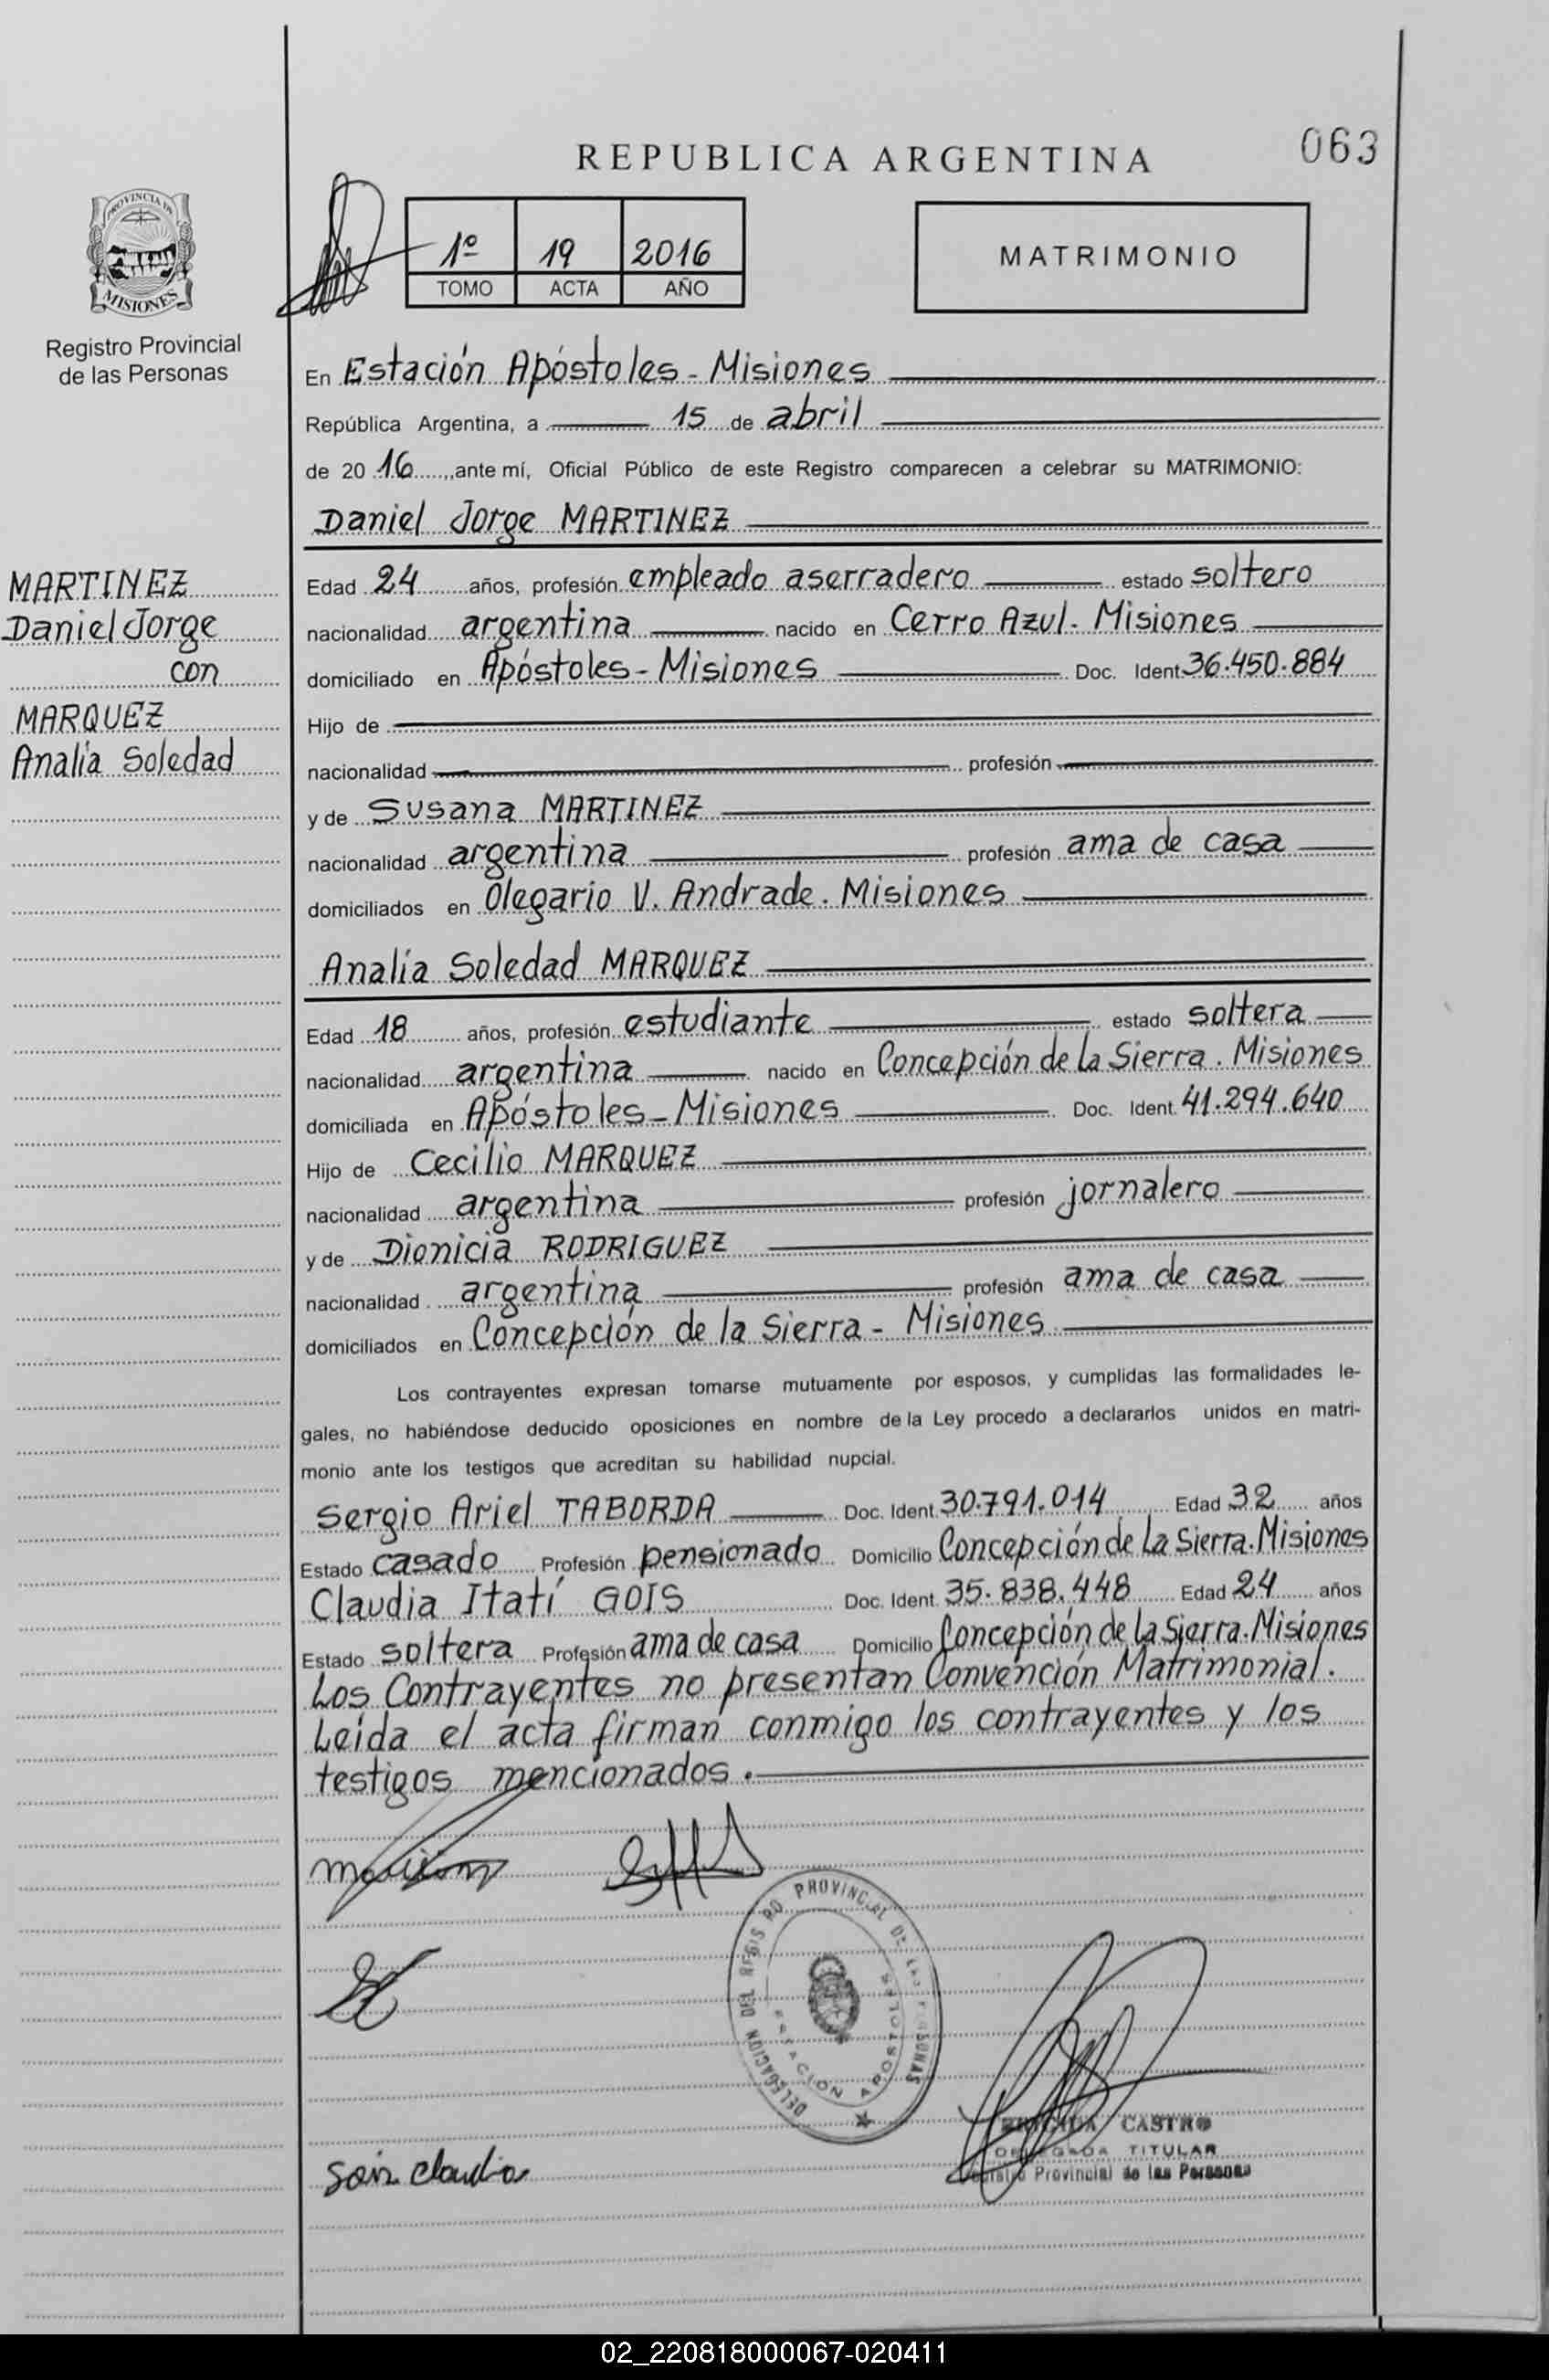 063
REPUBLICA ARGENTINA
PROVINCIA DE
MISIONES
Registro Provincial
de las Personas
1º 19 2016
TOMO ACTA AÑO
MATRIMONIO
En Estación Apóstoles - Misiones
República Argentina, a 15 de abril
de 20 16, ante mí, Oficial Público de este Registro comparecen a celebrar su MATRIMONIO:
Daniel Jorge MARTINEZ
MARTINEZ
Daniel Jorge
con
MARQUEZ
Analía Soledad
Edad 24 años, profesión empleado aserradero estado soltero
nacionalidad argentina nacido en Cerro Azul - Misiones
domiciliado en Apóstoles - Misiones Doc. Ident. 36.450.884
Hijo de
nacionalidad profesión
y de Susana MARTINEZ
nacionalidad argentina profesión ama de casa
domiciliados en Olegario V. Andrade. Misiones
Analía Soledad MARQUEZ
Edad 18 años, profesión estudiante estado soltera
nacionalidad argentina nacido en Concepción de la Sierra. Misiones
domiciliada en Apóstoles - Misiones Doc. Ident. 41.294.640
Hijo de Cecilio MARQUEZ
nacionalidad argentina profesión jornalero
y de Dionicia RODRIGUEZ
nacionalidad argentina profesión ama de casa
domiciliados en Concepción de la Sierra - Misiones
Los contrayentes expresan tomarse mutuamente por esposos, y cumplidas las formalidades le-
gales, no habiéndose deducido oposiciones en nombre de la Ley procedo a declararlos unidos en matri-
monio ante los testigos que acreditan su habilidad nupcial.
Sergio Ariel TABORDA Doc. Ident. 30.791.014 Edad 32 años
Estado casado Profesión pensionado Domicilio Concepción de la Sierra. Misiones
Claudia Itatí GOIS Doc. Ident. 35.838.448 Edad 24 años
Estado soltera Profesión ama de casa Domicilio Concepción de la Sierra. Misiones
Los Contrayentes no presentan Convención Matrimonial.
Leída el acta firman conmigo los contrayentes y los
testigos mencionados.
DELEGACION DEL REGISTRO PROVINCIAL DE LAS PERSONAS
ESTACION APOSTOLES
CASTRO
DELEGADA TITULAR
Registro Provincial de las Personas
Claudia
02_220818000067-020411